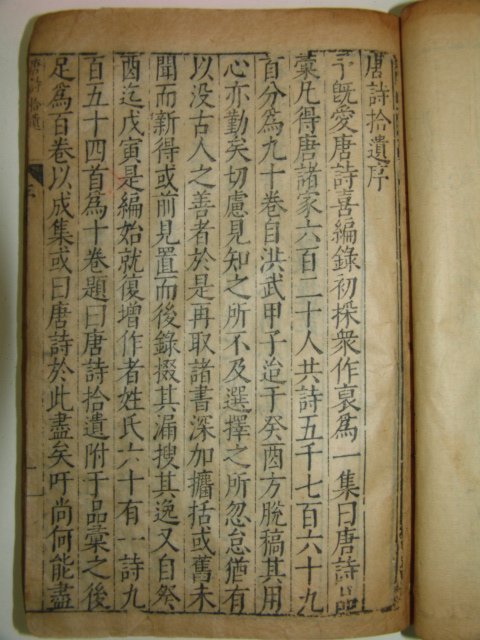 唐詩拾遺序
予旣愛唐詩喜編錄初採衆作裒爲一集曰唐詩品
彙凡得唐諸家六百二十人共詩五千七百六十九
首分爲九十卷自洪武甲子迨于癸酉方脫稿其用
心亦勤矣切慮見知之所不及選擇之所忽怠猶有
以没古人之善者於是再取諸書深加櫽括或舊未
聞而新得或前見置而後錄掇其漏搜其逸又自癸
酉迄戊寅是編始就復增作者姓氏六十有一詩九
百五十四首爲十卷題曰唐詩拾遺附于品彙之後
足爲百卷以成集或曰唐詩於此盡矣吁尚何能盡
唐詩拾遺